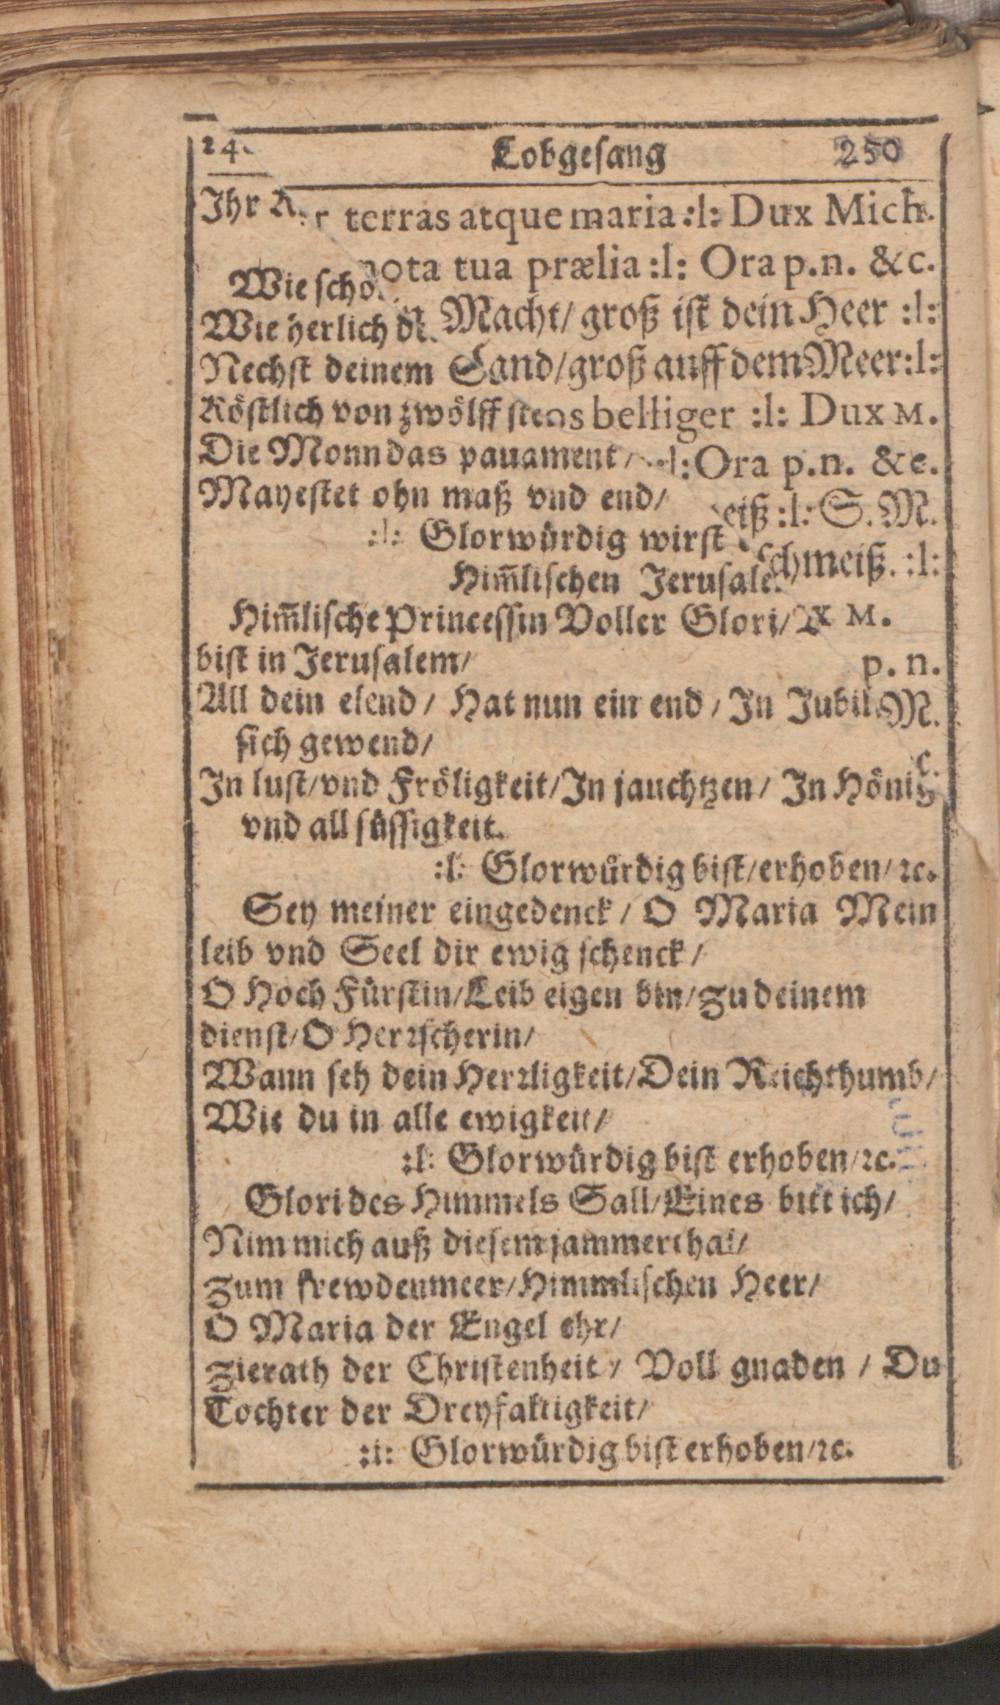 24. Lobgesang 250
Ihr r terras atque maria :l: Dux Mich.
Wie scho ota tua prælia :l: Ora p.n. &c.
Wie herlich Macht/ groß ist dein Heer :l:
Nechst deinem Land/ groß auff dem Meer :l:
Köstlich von zwölff belliger :l: Dux M.
Die Monn das pauament / :l: Ora p.n. &c.
Mayestet ohn maß vnd end/ eiß :l: S. M.
:l: Glorwürdig wirst schmeiß. :l:
Him̄lischen Jerusale
Him̄lische Princessin Voller Glori/ x M.
bist in Jerusalem/ p. n.
All dein elend / Hat nun ein end / In Jubil M.
sich gewend/
In lust/ vnd Fröligkeit/ In jauchtzen / In Hönig
vnd all süssigkeit.
:l: Glorwürdig bist/ erhoben/ ꝛc.
Sey meiner eingedenck / O Maria Mein
leib vnd Seel dir ewig schenck /
O Hoch Fürstin/ Leib eigen bin/ zu deinem
dienst/ O Herꝛscherin/
Wann seh dein Herꝛligkeit/ Dein Reichthumb/
Wie du in alle ewigkeit/
:l: Glorwürdig bist erhoben/ ꝛc.
Glori des Himmels Sall/ Eines bitt ich/
Nim mich auß diesem jammerthal/
Zum frewdenmeer/ Himmlischen Heer/
O Maria der Engel ehr/
Zierath der Christenheit / Voll gnaden / Du
Tochter der Dreyfaltigkeit/
:l: Glorwürdig bist erhoben/ ꝛc.